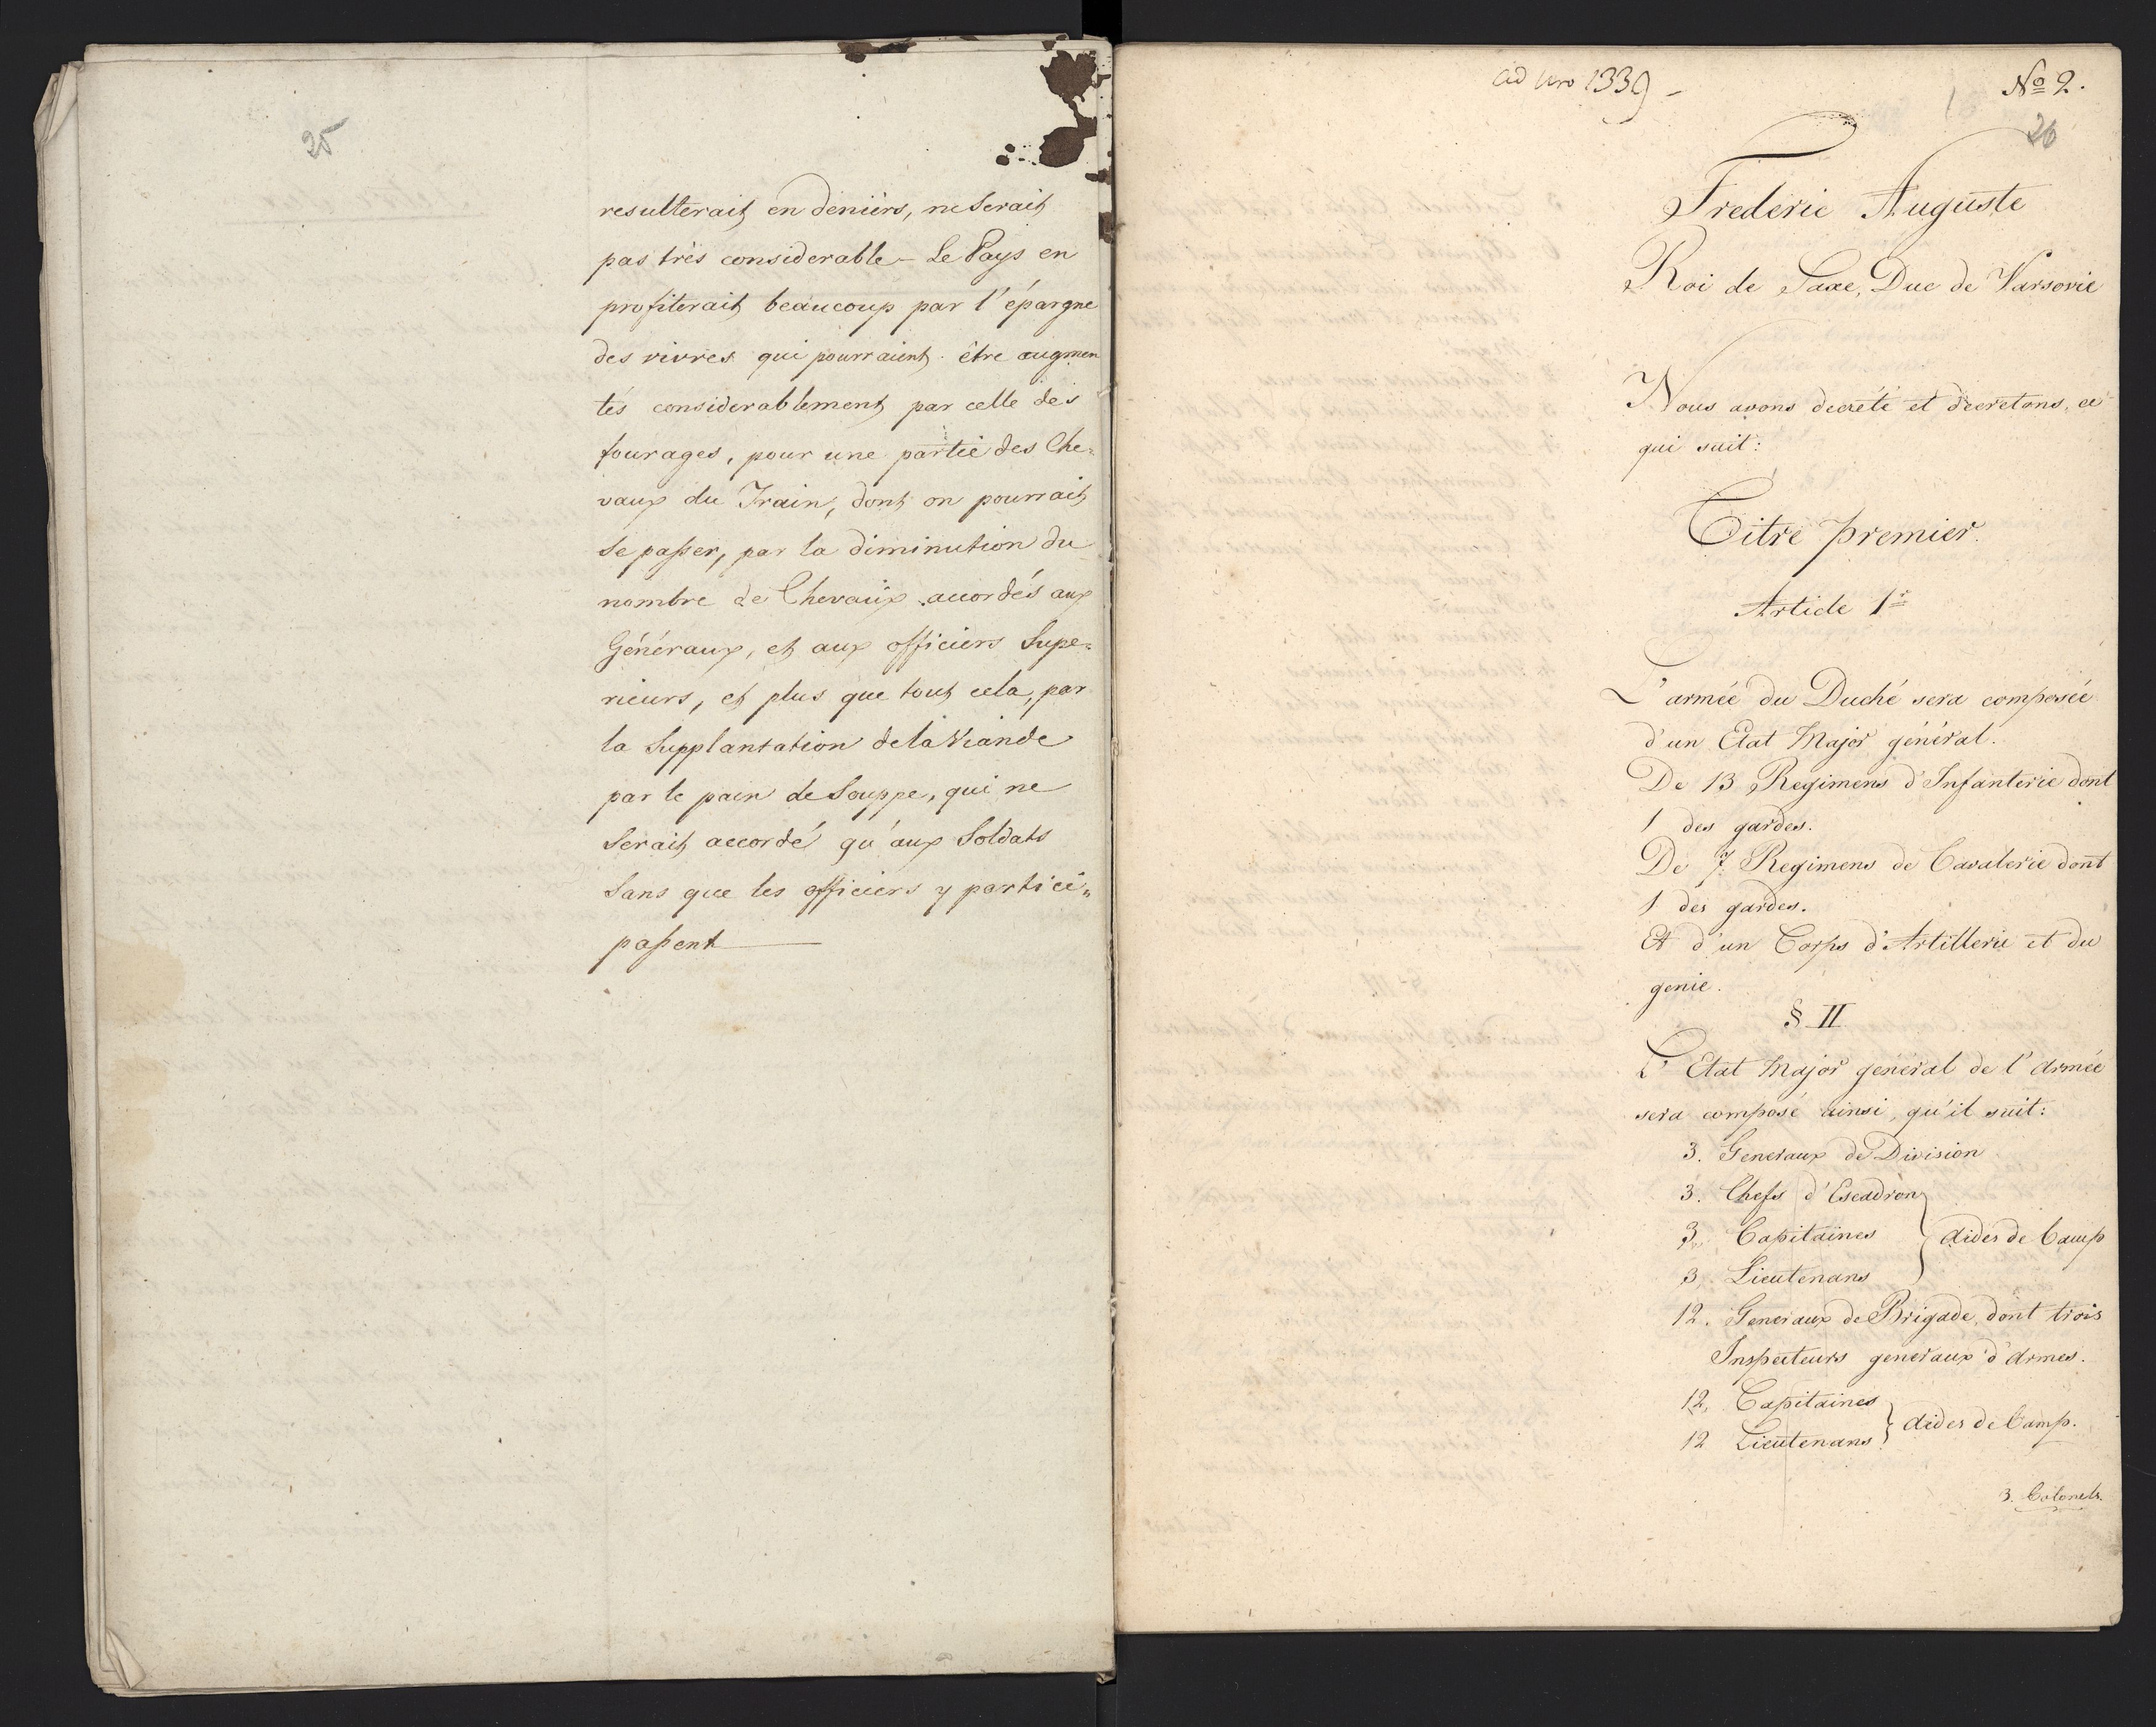 25
resulterait en deniérs, ne serait
pas très considerable – Le Pays en
profiterait beaucoup par l'épargne
des vivres qui pourraient être augmen
tés considerablement par celle des
fourages, pour une partie des Che=
vaux du Train, dont on pourrait
se passer, par la diminution du
nombre de Chevaux accordés aux
Généraux, et aux officiers Supe=
rieurs, et plus que tout cela, par
la Supplantation de la Viande
par le pain de Souppe, qui ne
serait accordé qu'aux Soldats
sans que les officiers y partici=
passent
ad nro 1339 –
No 2.
26
Frederic Auguste
Roi de Saxe, Duc de Varsovie
Nous avons decrété et decretons, ce
qui suit:
Titre premier.
Article 1r
L'armée du Duché sera composée
d'un Etat Major général.
De 13 Regimens d'Infanterie dont
1 des gardes.
De 7 Regimens de Cavalerie dont
1 des gardes.
Et d'un Corps d'Artillerie et du
genie.
§ II
L'Etat Major général de l'Armée
sera composé ainsi, qu'il suit:
3. Generaux de Division
3. Chefs d'Escadron
3. Capitaines } Aides de Camp
3. Lieutenans
12. Generaux de Brigade, dont trois
Inspecteurs generaux d'Armes.
12. Capitaines
12 Lieutenans } Aides de Camp.
3. Colonels.